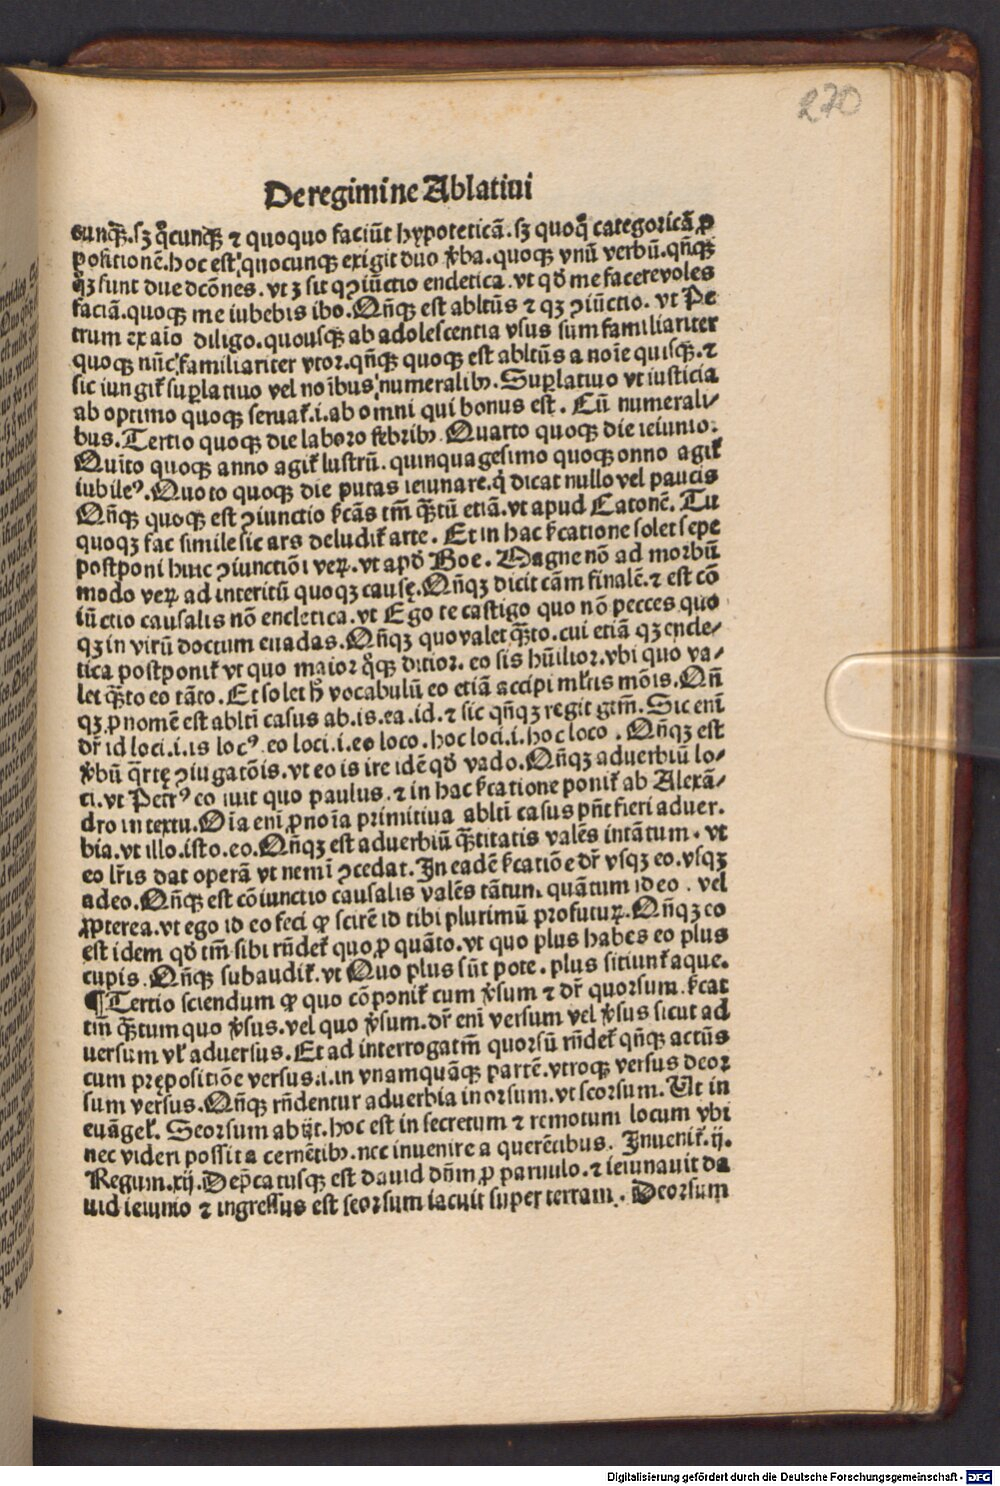 270
De regimine Ablatiui
cunqꝫ. sꝫ qͥcunqꝫ ⁊ quoquo faciūt hypoteticā. sꝫ quoqͣ categoricā ꝓ
positionē. hoc est quocunqꝫ exigit duo v̓ba. quoqꝫ vnū verbū. qn̄qꝫ
qͥꝫ sunt due dcōnes. vt ꝫ sit qꝫ ꝯiūctio encletica. vt qd̓ me facere voles
faciā. quoqꝫ me iubebis ibo. Qn̄qꝫ est abltūs ⁊ qꝫ ꝯiūctio. vt Pe
trum ex aīo diligo. quousqꝫ ab adolescentia vsus sum familiariter
quoqꝫ nūc familiariter vtor. qn̄qꝫ quoqꝫ est abltūs a noīe quisqꝫ. ⁊
sic iungit̃ suꝑlatiuo vel noībus numeralibꝫ. Suꝑlatiuo vt iusticia
ab optimo quoqꝫ seruat̃. i. ab omni qui bonus est. Cū numerali⸗
bus. Tertio quoqꝫ die laboro febribꝫ. Quarto quoqꝫ die ieiunio.
Quīto quoqꝫ anno agit̃ lustrū. quinquagesimo quoqꝫ onno agit̃
iubileꝰ. Quoto quoqꝫ die putas ieiunare. q̇ dicat nullo vel paucis
Qn̄qꝫ quoqꝫ est ꝯiunctio s̓cās tm̄ qꝫtū etiā. vt apud Catonē. Tu
quoqꝫ fac simile sic ars deludit̃ arte. Et in hac s̓catione solet sepe
postponi huic ꝯiunctiōi veꝝ. vt apd̓ Boe. Magne nō ad morbū
modo veꝝ ad interitū quoqꝫ causę. Qn̄qꝫ dicit cām finalē. ⁊ est cō
iūctio causalis nō encletica. vt Ego te castigo quo nō pecces quo
qꝫ in virū doctum euadas. Qn̄qꝫ quo valet qꝫto. cui etiā qꝫ encle⸗
tica postponit̃ vt quo maior qͥqꝫ ditior. eo sis hūilior. vbi quo va⸗
let qꝫto eo tāto. Et solet h̓ vocabulū eo etiā accipi ml̓tis mōis. Qn̄
qꝫ ꝓnomē est abltī casus ab. is. ea. id. ⁊ sic qn̄qꝫ regit gtm̄. Sic enī
dr̄ id loci. i. is locꝰ. eo loci. i. eo loco. hoc loci. i. hoc loco. Qn̄qꝫ est
v̓bū qͣrtę ꝯiugatōis. vt eo is ire idē qd̓ vado. Qn̄qꝫ aduerbiū lo⸗
ci. vt Petrꝰ eo iuit quo paulus. ⁊ in hac s̓catione ponit̃ ab Alexā⸗
dro in textu. Oīa enī ꝓnoīa primitiua abltī casus pn̄t fieri aduer.
bia. vt illo. isto. eo. Qn̄qꝫ est aduerbiū qꝫtitatis valēs intātum. vt
eo lr̄is dat operā vt nemī ꝯcedat. In eadē s̓catiōe dr̄ vsqꝫ eo. vsqꝫ
adeo. Qn̄qꝫ est cōiunctio causalis valēs tātum quātum ideo. vel
ꝓpterea. vt ego id eo feci qꝙ scirē id tibi plurimū profuturꝝ. Qn̄qꝫ eo
est idem qd̓ tm̄ sibi rn̄det̃ quo ꝓ quāto. vt quo plus habes eo plus
cupis. Qn̄qꝫ subaudit̃. vt Quo plus sūt pote. plus sitiunt̃ aque.
¶ Tertio sciendum ꝙ quo cōponit̃ cum v̓sum ⁊ dr̄ quorsum. s̓cat
tm̄ qꝫtum quo v̓sus. vel quo v̓sum. dr̄ enī versum vel v̓sus sicut ad
uersum vl̓ aduersus. Et ad interrogatm̄ quorsū rn̄det̃ qn̄qꝫ actūs
cum prępositiōe versus. i. in vnamquāqꝫ partē. vtroqꝫ versus deor
sum versus. Qn̄qꝫ rn̄dentur aduerbia in orsum. vt seorsum. Vt in
euāgel̓. Seorsum abijt. hoc est in secretum ⁊ remotum locum vbi
nec videri possit a cernētibꝫ. nec inuenire a querētibus. Inuenit̃. ij.
Regum. xij. Dep̄catusqꝫ est dauid dn̄m ꝓ paruulo. ⁊ ieiunauit da
uid ieiunio ⁊ ingressus est seorsum iacuit super terram. Deorsum
Digitalisierung gefördert durch die Deutsche Forschungsgemeinschaft - DFG